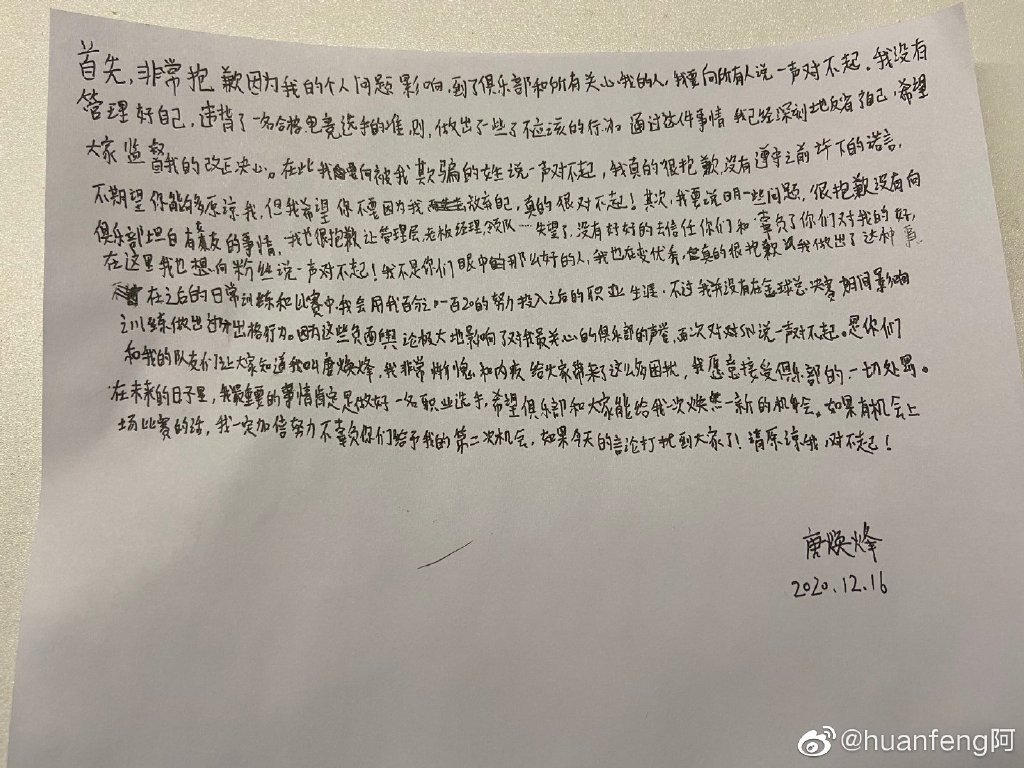 首先,非常抱歉因为我的个人问题影响到了俱乐部和所有关心我的人,我要向所有人说一声对不起。我没有
管理好自己,违背了一名合格电竞选手的准则,做出了一些不应该的行为 通过这件事情 我已经深刻地反省了自己,希望
大家监督我的改正决心。在此我要向被我欺骗的女生说一声对不起,我真的很抱歉,没有遵守之前许下的诺言,
不期望你能够原谅我,但我希望你不要因为我放弃自己,真的很对不起!其次,我要说明一些问题,很抱歉没有向
俱乐部坦白有女友的事情。我也很抱歉让管理层,老板经理,领队…失望了,没有好好的去信任你们和辜负了你们对我的好,
在这里我也想向粉丝说一声对不起!我不是你们眼中的那么好的人,我也在变优秀,但真的很抱歉我做出了这种事
在之后的日常训练和比赛中我会用我百分之一百20的努力投入之后的职业生涯,不过我并没有在全球总决赛期间影响
训练做出出格行为。因为这些负面舆论极大地影响了对我最关心的俱乐部的声誉,再次对对SN说一声对不起。是你们
和我的队友们让大家知道我叫唐焕烽,我非常惭愧和内疚给大家带来了这么多困扰,我愿意接受俱乐部的一切处罚。
在未来的日子里,我最重要的事情肯定是做好一名职业选手,希望俱乐部和大家能给我一次焕然一新的机会。如果有机会上
场比赛的话,我一定加倍努力不辜负你们给予我的第二次机会,如果今天的言论打扰到大家了!请原谅我,对不起!
唐焕烽
2020.12.16
@huanfeng阿